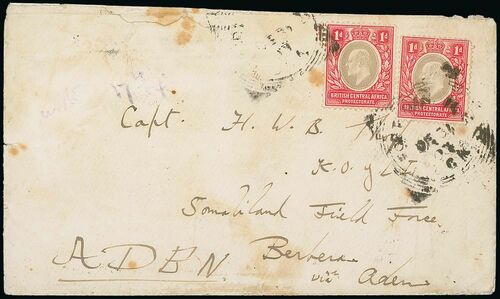 1d 1d
BRITISH CENTRAL AFRICA
PROTECTORATE
1d 1d
BRITISH CENTRAL AFRICA
PROTECTORATE
Capt. H. W. B.
K. O. Y. L. I.
Somaliland Field Force
Berbera
ADEN. via Aden